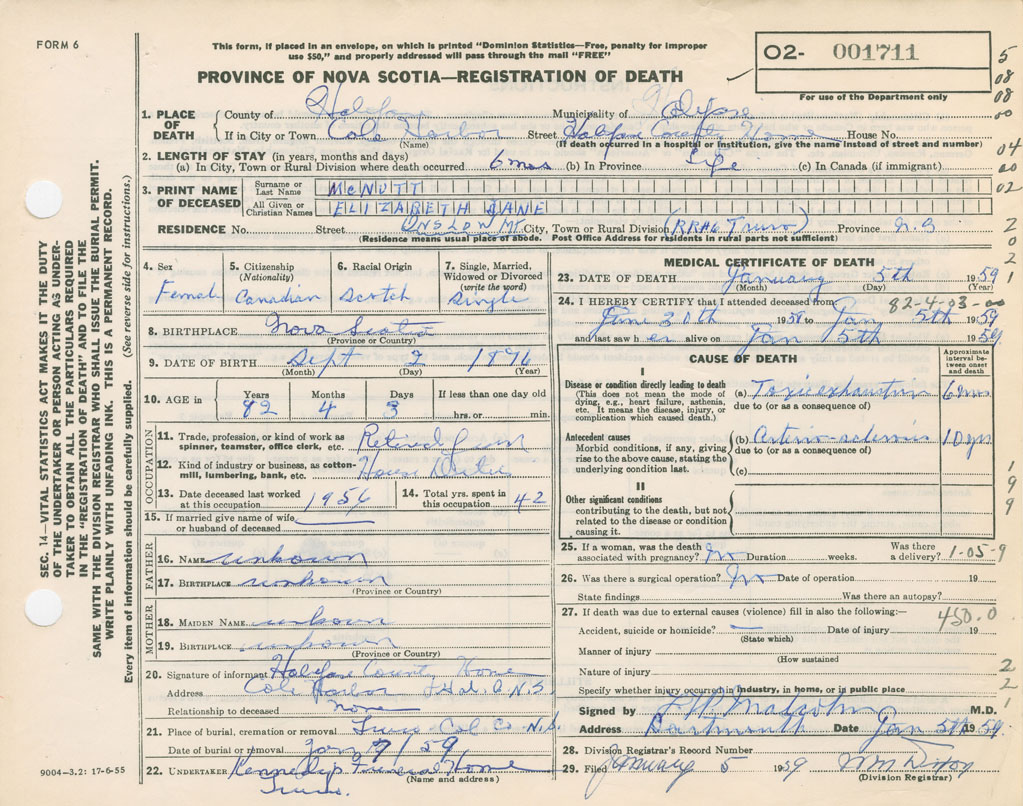 FORM 6
This form, if placed in an envelope, on which is printed "Dominion Statistics—Free, penalty for improper
use $50," and properly addressed will pass through the mail "FREE"
PROVINCE OF NOVA SCOTIA—REGISTRATION OF DEATH
O2- 001711
For use of the Department only
1. PLACE OF DEATH
County of Halifax Municipality of Halifax
If in City or Town Cole Harbor Street Halifax County Home House No.
(Name) (If death occurred in a hospital or institution, give the name instead of street and number)
2. LENGTH OF STAY (in years, months and days)
(a) In City, Town or Rural Division where death occurred 6 mos (b) In Province Life (c) In Canada (if immigrant)
3. PRINT NAME OF DECEASED
Surname or Last Name McNUTT
All Given or Christian Names ELIZABETH JANE
RESIDENCE No. Street ONSLOW Mt. City, Town or Rural Division (RR#6 Truro) Province N.S
(Residence means usual place of abode. Post Office Address for residents in rural parts not sufficient)
4. Sex Female
5. Citizenship (Nationality) Canadian
6. Racial Origin Scotch
7. Single, Married, Widowed or Divorced (write the word) Single
8. BIRTHPLACE Nova Scotia
(Province or Country)
9. DATE OF BIRTH Sept 2 1876
(Month) (Day) (Year)
10. AGE in Years Months Days If less than one day old
82 4 3 hrs. or min.
OCCUPATION
11. Trade, profession, or kind of work as
spinner, teamster, office clerk, etc. Retired
12. Kind of industry or business, as cotton-
mill, lumbering, bank, etc. House
13. Date deceased last worked
at this occupation 1956
14. Total yrs. spent in
this occupation 42
15. If married give name of wife
or husband of deceased
FATHER
16. NAME unknown
17. BIRTHPLACE unknown
(Province or Country)
MOTHER
18. MAIDEN NAME unknown
19. BIRTHPLACE unknown
(Province or Country)
20. Signature of informant Halifax County Home
Address Cole Harbor N.S.
Relationship to deceased none
21. Place of burial, cremation or removal Truro Col Co N.S.
Date of burial or removal Jan 7/59
22. UNDERTAKER Kennedys Funeral Home
(Name and address)
Truro.
9004—3.2: 17-6-55
MEDICAL CERTIFICATE OF DEATH
23. DATE OF DEATH January 5th 1959
(Month) (Day) (Year)
24. I HEREBY CERTIFY that I attended deceased from: 82-4-03-00
June 30th 1958 to Jan 5th 1959
and last saw her alive on Jan 5th 1959
CAUSE OF DEATH
Approximate interval between onset and death
I
Disease or condition directly leading to death
(This does not mean the mode of
dying, e.g., heart failure, asthenia,
etc. It means the disease, injury, or
complication which caused death.)
(a) Toxic exhaustion 6 mos
due to (or as a consequence of)
Antecedent causes
Morbid conditions, if any, giving
rise to the above cause, stating the
underlying condition last.
(b) Arterio-sclerosis 10 yrs
due to (or as a consequence of)
(c)
II
Other significant conditions
contributing to the death, but not
related to the disease or condition
causing it.
25. If a woman, was the death
associated with pregnancy? No Duration weeks. Was there
a delivery? 1-05-9
26. Was there a surgical operation? No Date of operation 19
State findings Was there an autopsy?
27. If death was due to external causes (violence) fill in also the following:—
450.0
Accident, suicide or homicide? — Date of injury 19
(State which)
Manner of injury
(How sustained
Nature of injury
Specify whether injury occurred in industry, in home, or in public place
Signed by Malcolm M.D.
Address Dartmouth Date Jan 5th 1959
28. Division Registrar's Record Number
29. Filed January 5 1959
(Division Registrar)
SEC. 14—VITAL STATISTICS ACT MAKES IT THE DUTY
OF THE UNDERTAKER OR PERSON ACTING AS UNDER-
TAKER TO OBTAIN ALL THE PARTICULARS REQUIRED
IN THE "REGISTRATION OF DEATH" AND TO FILE THE
SAME WITH THE DIVISION REGISTRAR WHO SHALL ISSUE THE BURIAL PERMIT.
WRITE PLAINLY WITH UNFADING INK. THIS IS A PERMANENT RECORD.
Every item of information should be carefully supplied. (See reverse side for instructions.)
5
08
08
00
04
00
02
2
0
2
1
1
9
9
2
2
1